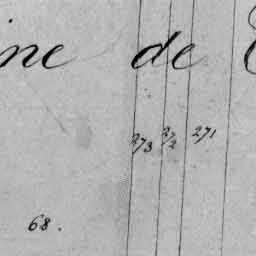 ine de
273 272 271
68.